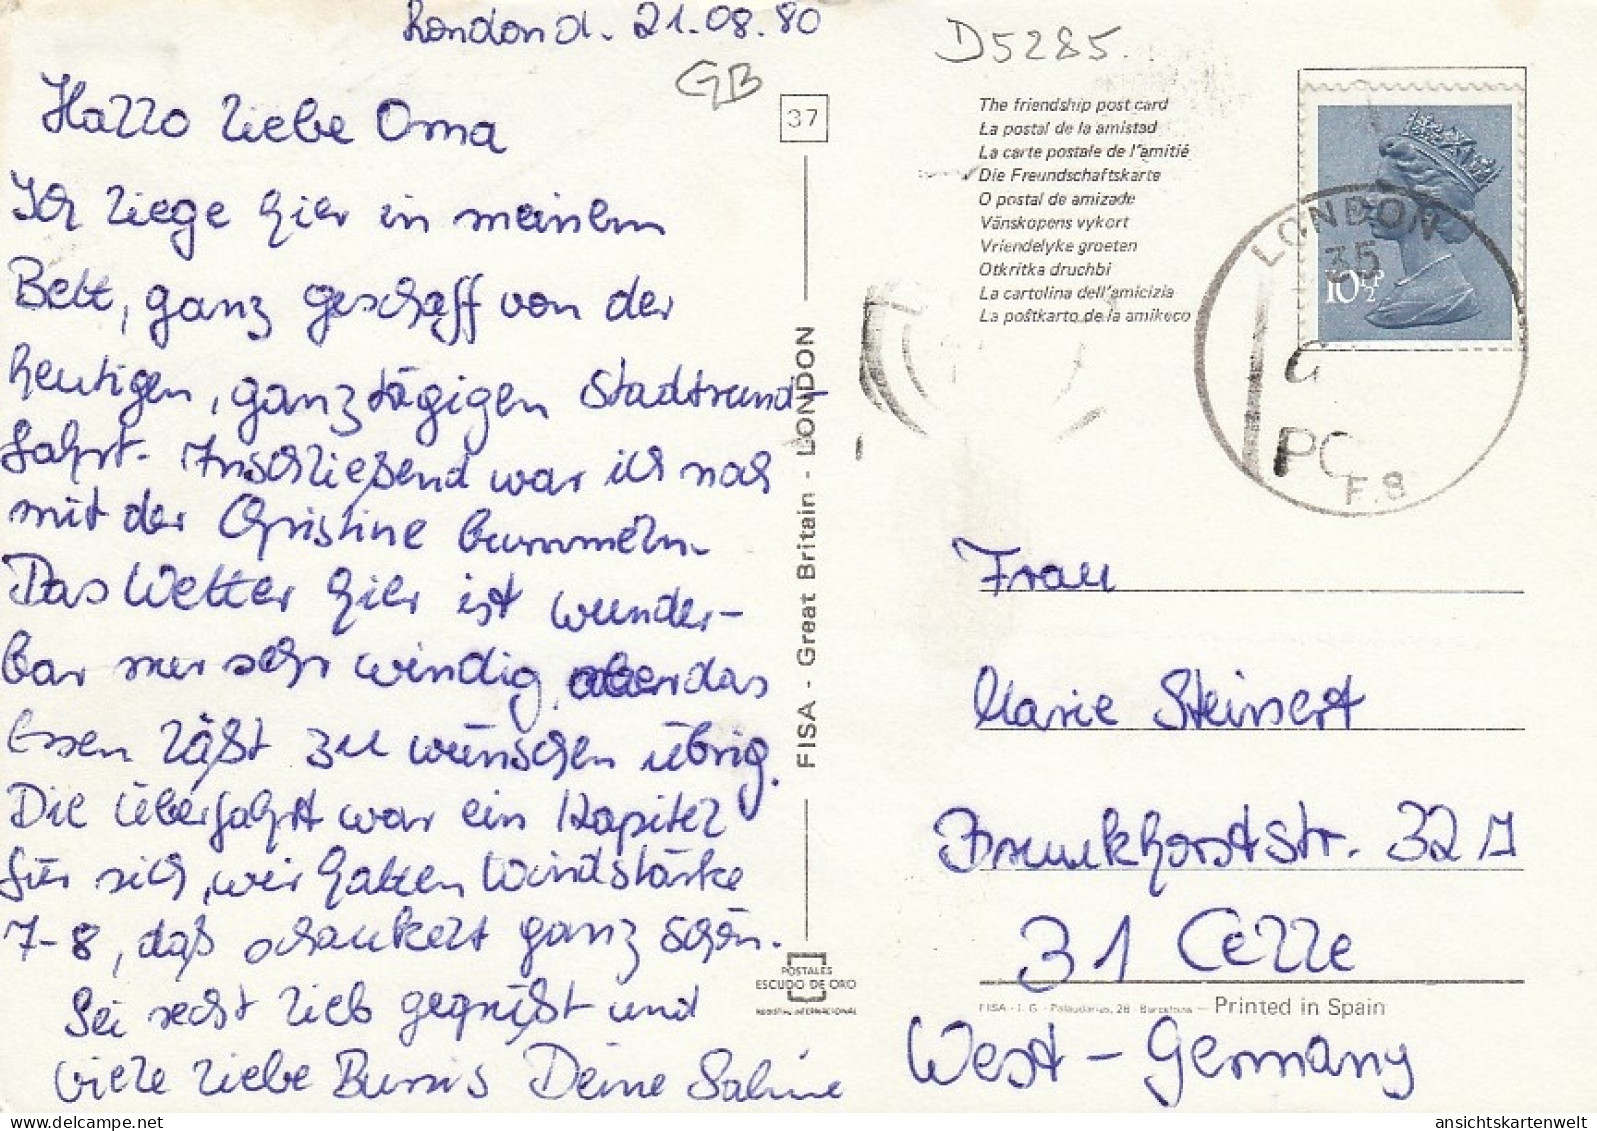 London d. 21.08.80
GB
D5285.
Hallo liebe Oma
Ich liege hier in meinem
Bett, ganz geschafft von der
heutigen, ganztägigen Stadtrund-
fahrt. Anschließend war ich noch
mit der Christine bummeln.
Das Wetter hier ist wunder-
bar nur sehr windig, aber das
Essen läßt zu wünschen übrig.
Die Überfahrt war ein Kapitel
für sich, wir hatten Windstärke
7-8, das schaukelt ganz schön.
Sei recht lieb gegrüßt und
viele liebe Bussis Deine Sabine
37
FISA - Great Britain - LONDON
POSTALES
ESCUDO DE ORO
REGISTRO INTERNACIONAL
The friendship post card
La postal de la amistad
La carte postale de l'amitié
Die Freundschaftskarte
O postal de amizade
Vänskopens vykort
Vriendelyke groeten
Otkritka druchbi
La cartolina dell'amicizia
La poŝtkarto de la amikeco
10½P
LONDON
35
PC
F.8
Frau
Marie Steinsert
Brunkhorststr. 32 A
31 Celle
FISA - I. G. - Palaudarias, 26 - Barcelona — Printed in Spain
West-Germany
ansichtskartenwelt.com